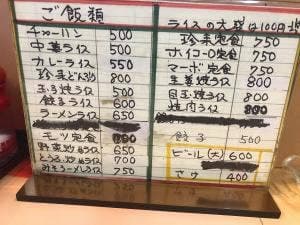 ご飯類
チャーハン 500
中華ライス 500
カレーライス 550
珍来どんぶり 800
玉子焼ライス 500
餃子ライス 600
ラーメンライス 650
モツ定食 800
野菜炒めライス 650
とうふ炒めライス 700
みそラーメンライス 750
ライスの大盛は100円増
珍来定食 750
ホイコーロ定食 750
マーボ定食 750
生姜焼ライス 800
目玉焼ライス 500
焼肉ライス 800
餃子 500
ビール(大) 600
サワ 400